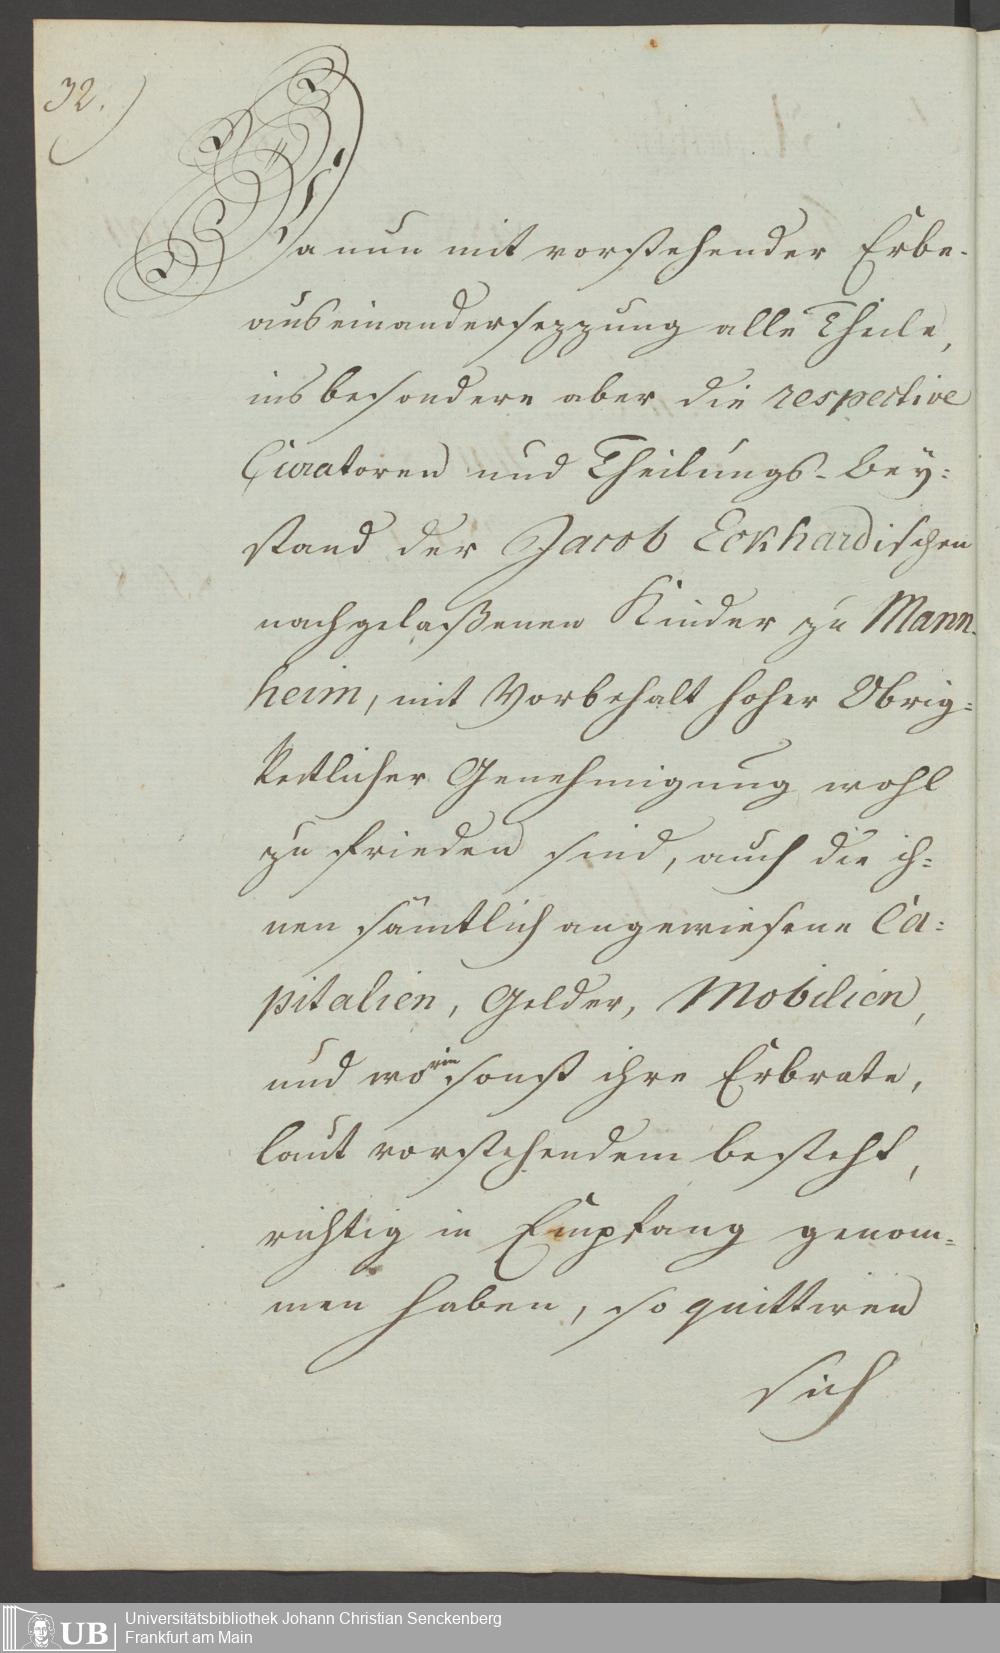 32.)
Da nun mit vorstehender Erbs-
auseinandersezzung alle Theile,
insbesondere aber die respective
Curatoren und Theilungs-Bey=
stand der Jacob Eckhardischen
nachgelaßenen Kinder zu Mann-
heim, mit Vorbehalt hoher Obrig=
keitlicher Genehmigung wohl
zu frieden sind, auch die ih=
nen sämtlich angewiesene Ca=
pitalien, Gelder, Mobilien,
und worin sonst ihre Erbrate,
laut vorstehendem besteht,
richtig in Empfang genom=
men haben, so quittiren
sich
Universitätsbibliothek Johann Christian Senckenberg
UB Frankfurt am Main